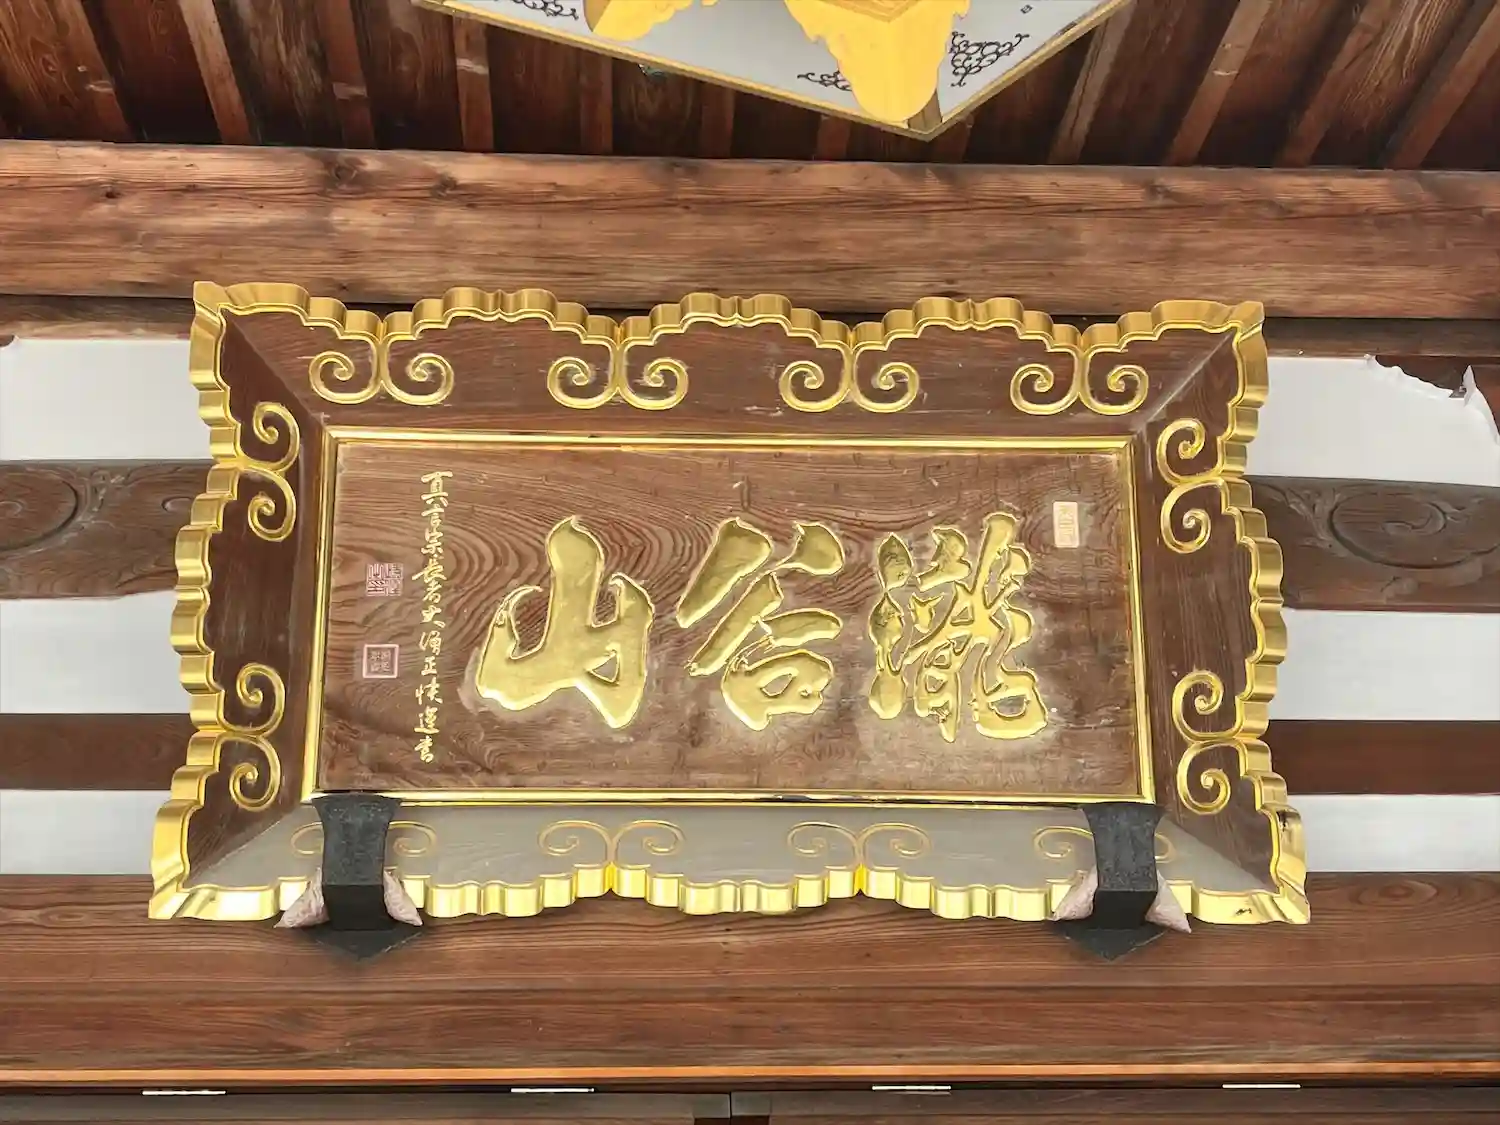 瀧谷山
真言宗長者大僧正快遵書